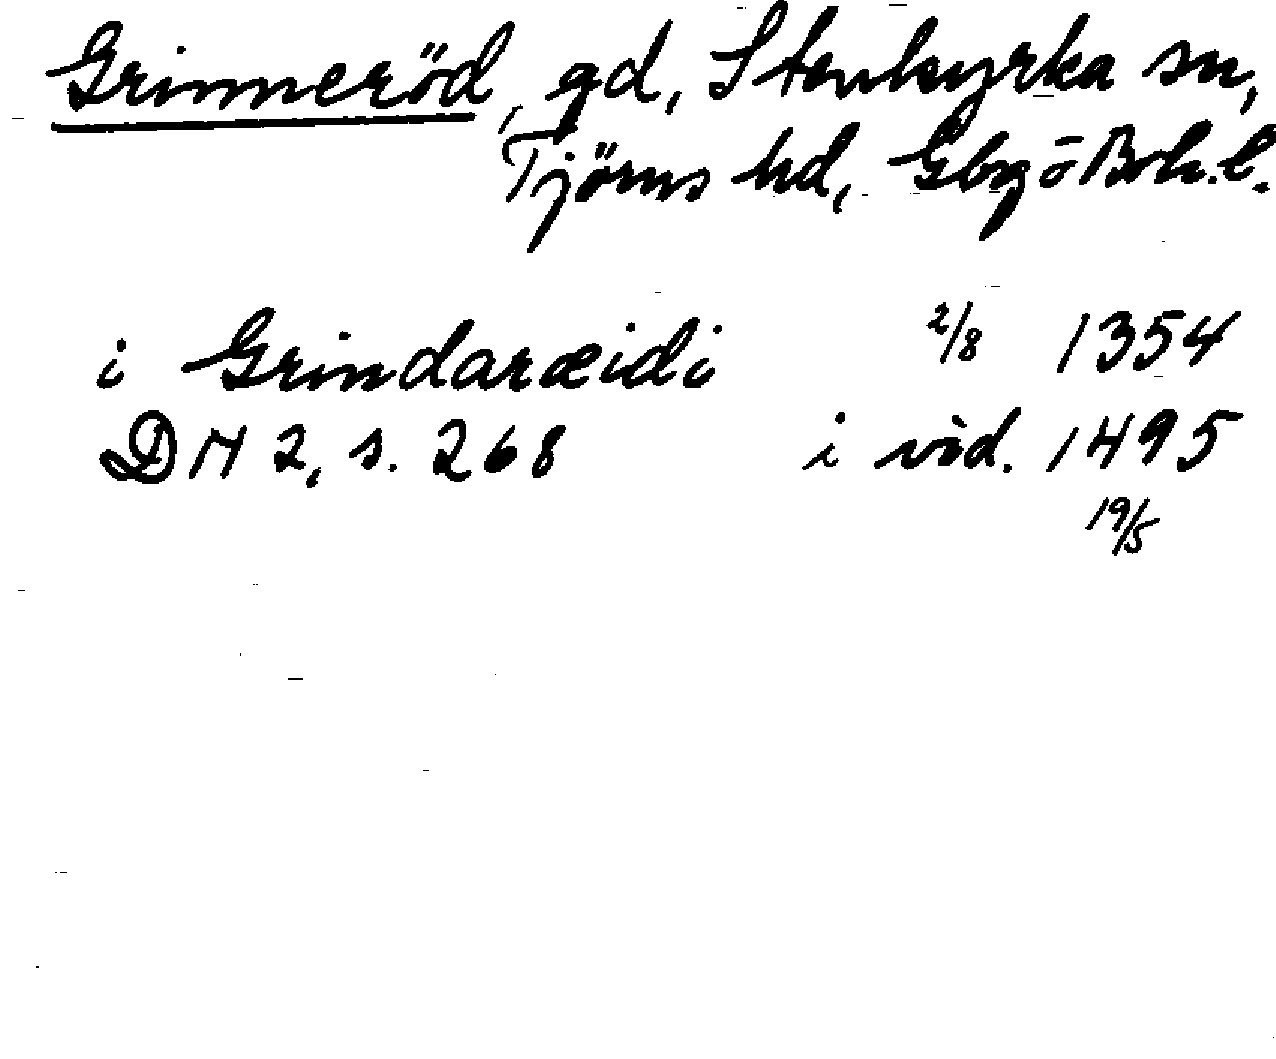 Grinneröd, gd, Stenkyrka sn,
Tjörns hd, Gbg ō Boh. l.
i Grindaræidi 2/8 1354
DN 2, s. 268 i vid. 1495
19/5